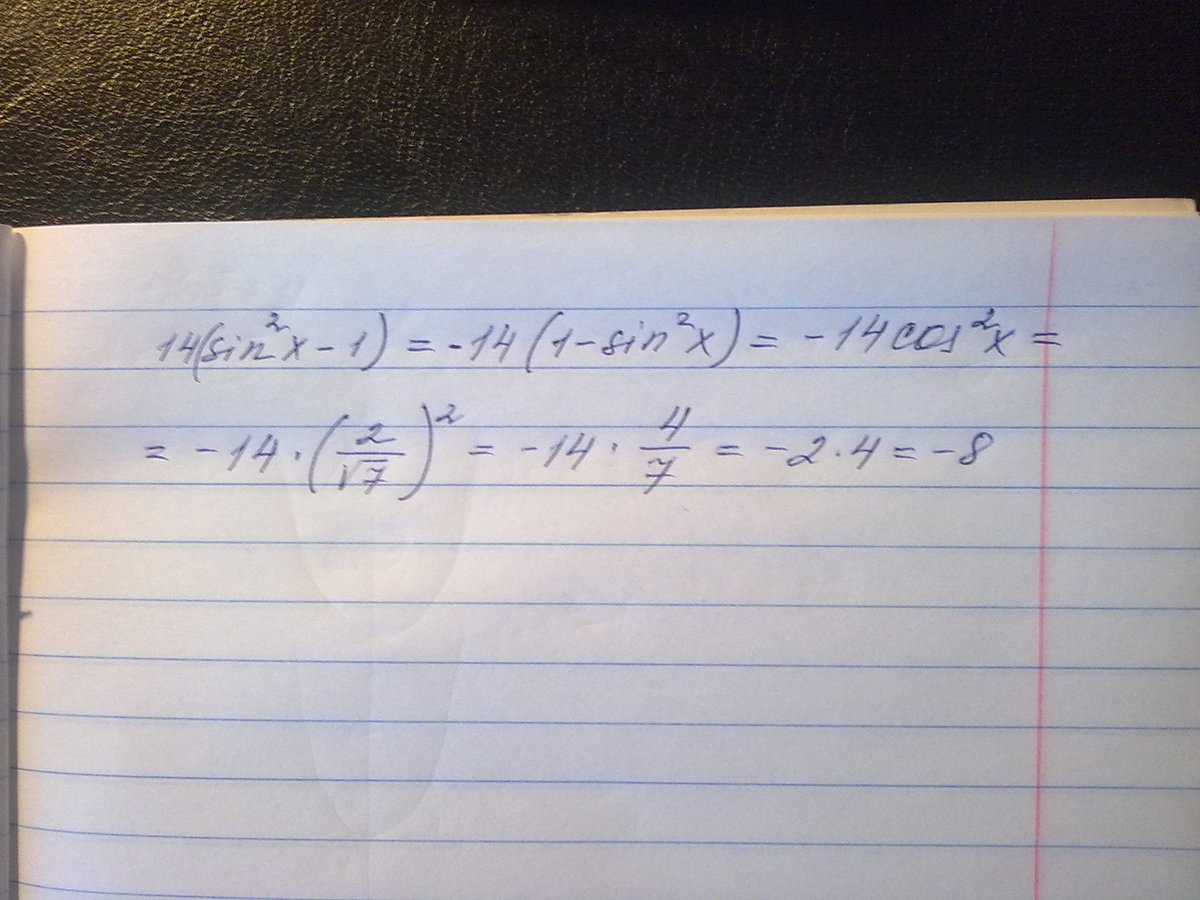 14(sin²x - 1) = -14(1 - sin²x) = -14cos²x =
= -14 · (2/√7)² = -14 · 4/7 = -2 · 4 = -8